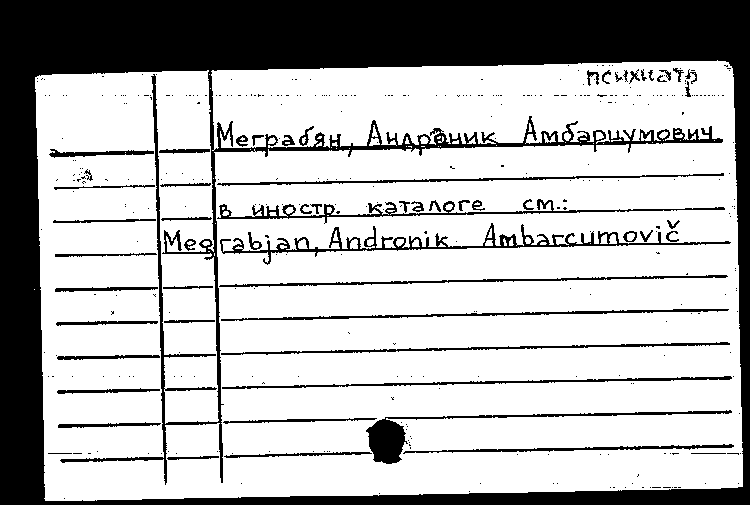 психиатр
Меграбян, Андраник Амбарцумович
в иностр. каталоге см.:
Megrabjan, Andronik Ambarcumovič